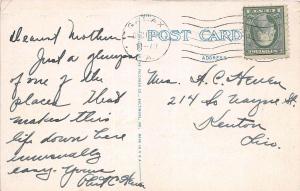 Dearest Mother—
Just a glimpse
of one of the
places that
makes this
life down here
unusually
easy. Yours
POST CARD
ADDRESS
Mrs. A. C.
214 So Wayne St
Kenton
Ohio.